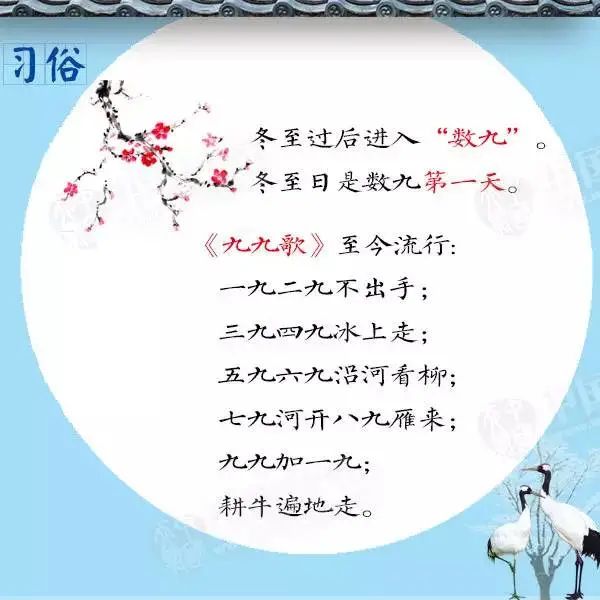 习俗
冬至过后进入“数九”。
冬至日是数九第一天。
《九九歌》至今流行:
一九二九不出手;
三九四九冰上走;
五九六九沿河看柳;
七九河开八九雁来;
九九加一九;
耕牛遍地走。